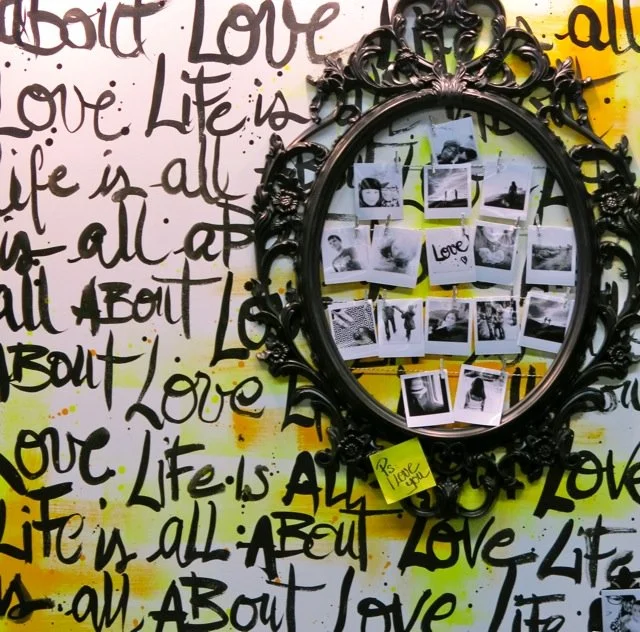 About Love is all
Love Life is About
life is all
is all aB
all About Lo
About Love Li
Love Life is All Love
Life is all About Love Life
is all About Love Life is
Love
Ps I love you